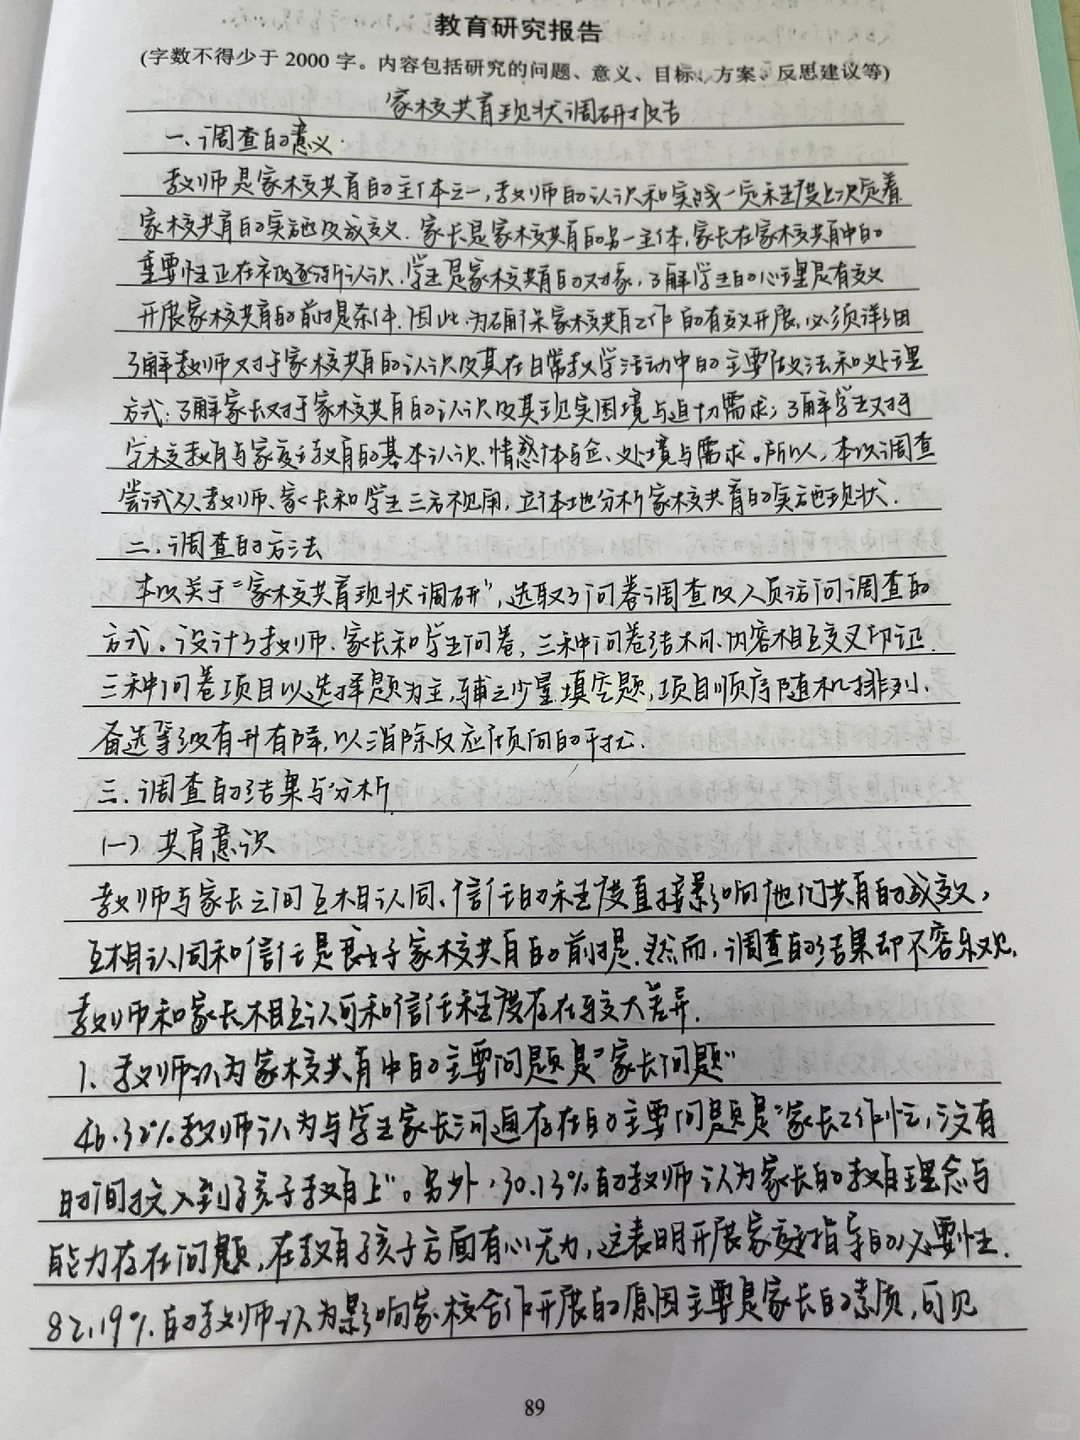 教育研究报告
(字数不得少于 2000 字。内容包括研究的问题、意义、目标、方案、反思建议等)
家校共育现状调研报告
一、调查的意义
教师是家校共育的主体之一,教师的认识和实践一定程度上决定着
家校共育的实施及成效。家长是家校共育的另一主体,家长在家校共育中的
重要性正在被逐渐认识。学生是家校共育的对象,了解学生的心理是有效
开展家校共育的前提条件。因此,为确保家校共育工作的有效开展,必须详细
了解教师对于家校共育的认识及其在日常教学活动中的主要做法和处理
方式;了解家长对于家校共育的认识及其现实困境与迫切需求;了解学生对于
学校教育与家庭教育的基本认识、情感体验、处境与需求。所以,本次调查
尝试从教师、家长和学生三方视角,立体地分析家校共育的实施现状。
二、调查的方法
本次关于“家校共育现状调研”,选取了问卷调查及人员访问调查的
方式。设计了教师、家长和学生问卷,三种问卷结构、内容相互交叉印证。
三种问卷项目以选择题为主,辅之少量填空题,项目顺序随机排列、
备选等级有升有降,以消除反应倾向的干扰。
三、调查的结果与分析
(一) 共育意识
教师与家长之间互相认同、信任的程度直接影响他们共育的成效,
互相认同和信任是良好家校共育的前提。然而,调查的结果却不容乐观,
教师和家长相互认可和信任程度存在较大差异。
1、教师认为家校共育中的主要问题是“家长问题”
46.32%教师认为与学生家长沟通存在的主要问题是“家长工作忙,没有
时间投入到孩子教育上”。另外,30.13%的教师认为家长的教育理念与
能力存在问题,在教育孩子方面有心无力,这表明开展家庭指导的必要性。
82.19%的教师认为影响家校合作开展的原因主要是家长的素质,可见
89